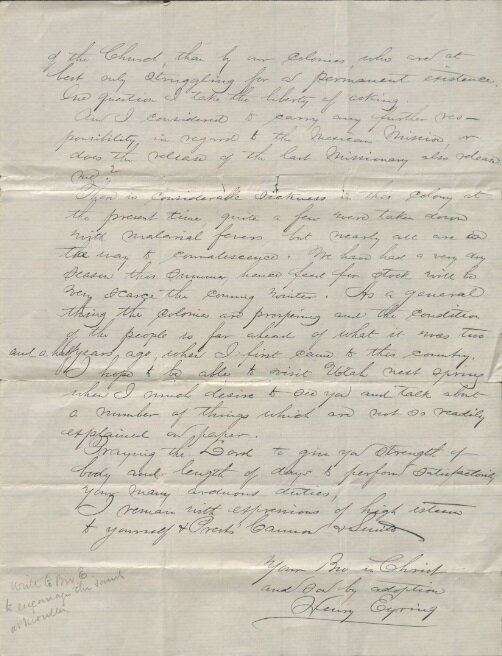 of the Church, than by our Colonies, who are at
best only struggling for a permanent existence.
One question I take the liberty of asking.
Am I considered to carry any further res-
ponsibility, in regard to the Mexican Mission, or
does the release of the last Missionary also release
me?
There is considerable sickness in this colony at
the present time, quite a few were taken down
with malarial fevers but nearly all are on
the way to convalescence. We have had a very dry
season this Summer hence feed for stock will be
very scarce the coming winter. As a general
thing the colonies are prospering and the condition
of the people is far ahead of what it was two
and a half years ago, when I first came to this country.
I hope to be able to visit Utah next spring
when I much desire to see you and talk about
a number of things which are not so readily
explained on paper.
Praying the Lord to give you strength of
body and length of days to perform satisfactorily
your many arduous duties,
I remain with expressions of high esteem
to yourself & Prests Cannon & Smith
Your Bro in Christ
and Son by adoption
Henry Eyring
Write to Bro E
to encourage the saints